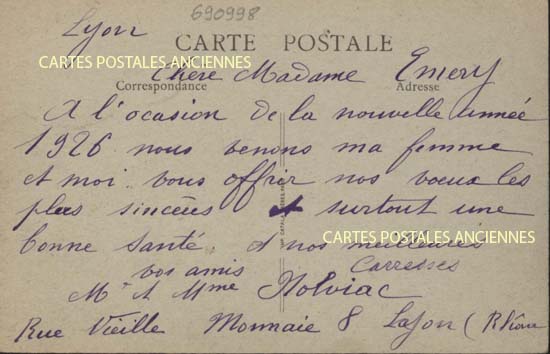 690998
Lyon
CARTE POSTALE
CARTES POSTALES ANCIENNES
Chère Madame Emery
Correspondance
Adresse
A l'ocasion de la nouvelle année
1926 nous venons ma femme
et moi vous offrir nos voeux les
plus sincères et surtout une
bonne santé. et nos meilleures
CARTES POSTALES ANCIENNES
Carresses
vos amis
Mr et Mme
Rue Vieille Monnaie 8 Lyon (Rhône